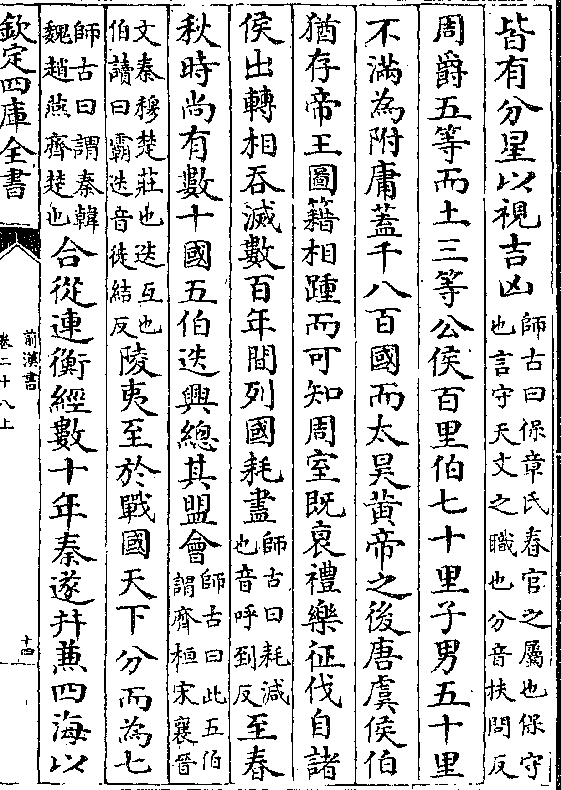 皆有分星以視吉凶師古曰保章氏春官之屬也保守也言守天文之職也分音扶問反
周爵五等而土三等公侯百里伯七十里子男五十里
不滿為附庸蓋千八百國而太昊黃帝之後唐虞侯伯
猶存帝王圖籍相踵而可知周室既衰禮樂征伐自諸
侯出轉相吞滅數百年間列國耗盡師古曰耗減也音呼到反至春
秋時尚有數十國五伯迭興總其盟會師古曰此五伯謂齊桓宋襄晉
文秦穆楚莊也迭互也伯讀曰霸迭音徒結反陵夷至於戰國天下分而為七
師古曰謂秦韓魏趙燕齊楚也合從連衡經數十年秦遂并兼四海以
欽定四庫全書
前漢書
卷二十八上
十四